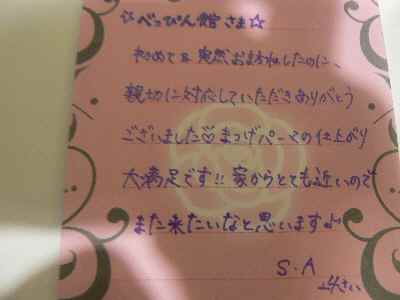 ☆べっぴん館さま☆
初めて&突然おまねしたのに、
親切に対応していただきありがとう
ございました♡まつげパーマの仕上がり
大満足です!!家からとても近いので
また来たいなと思います♪
S.A